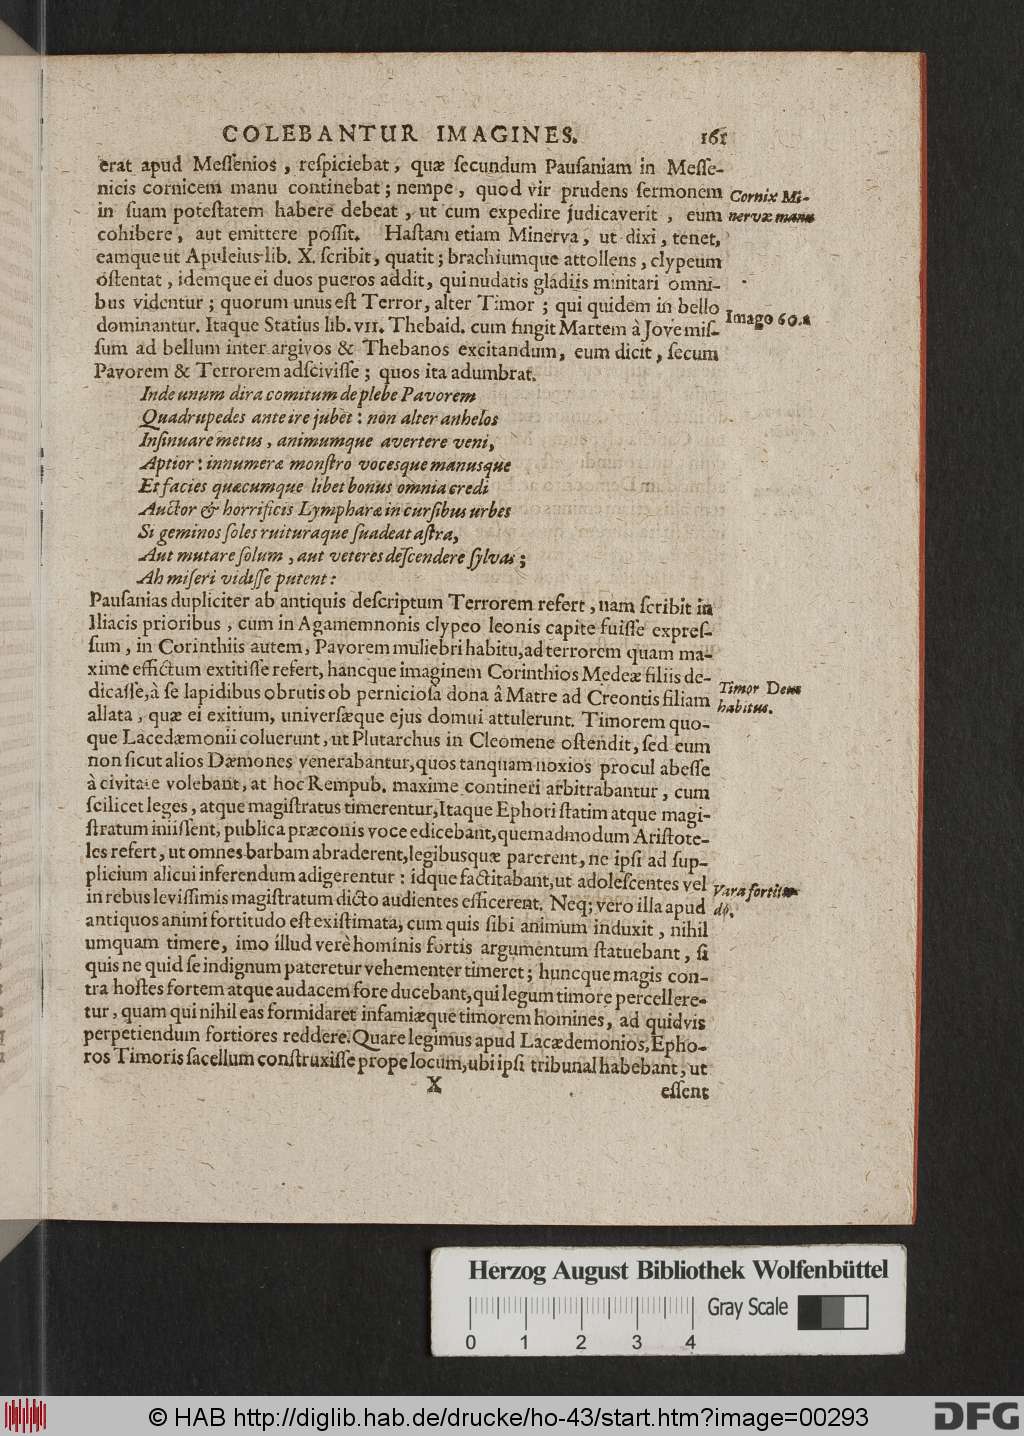 COLEBANTUR IMAGINES. 161
erat apud Messenios, respiciebat, quæ secundum Pausaniam in Messe-
nicis cornicem manu continebat; nempe, quod vir prudens sermonem
Cornix Mi-
in suam potestatem habere debeat, ut cum expedire judicaverit, eum
nervæ manu
cohibere, aut emittere possit. Hastam etiam Minerva, ut dixi, tenet,
eamque ut Apuleius lib. X. scribit, quatit; brachiumque attollens, clypeum
ostentat, idemque ei duos pueros addit, qui nudatis gladiis minitari omni-
bus videntur; quorum unus est Terror, alter Timor; qui quidem in bello
Imago 60.
dominantur. Itaque Statius lib. VII. Thebaid. cum fingit Martem à Jove mis-
sum ad bellum inter argivos & Thebanos excitandum, eum dicit, secum
Pavorem & Terrorem adscivisse; quos ita adumbrat.
Inde unum dira comitum de plebe Pavorem
Quadrupedes ante ire jubet: non alter anhelos
Insinuare metus, animumque avertere veni,
Aptior: innumeræ monstro vocesque manusque
Et facies quæcumque libet bonus omnia credi
Auctor & horrificis Lympharæ in cursibus urbes
Si geminos soles ruituraque suadeat astra,
Aut mutare solum, aut veteres descendere sylvas;
Ah miseri vidisse putent:
Pausanias dupliciter ab antiquis descriptum Terrorem refert, nam scribit in
Iliacis prioribus, cum in Agamemnonis clypeo leonis capite fuisse expres-
sum, in Corinthiis autem, Pavorem muliebri habitu, ad terrorem quam ma-
xime effictum extitisse refert, hancque imaginem Corinthios Medeæ filiis de-
dicasse, à se lapidibus obrutis ob perniciosa dona â Matre ad Creontis filiam
Timor Deus
habitus.
allata, quæ ei exitium, universæque ejus domui attulerunt. Timorem quo-
que Lacedæmonii coluerunt, ut Plutarchus in Cleomene ostendit, sed eum
non sicut alios Dæmones venerabantur, quos tanquam noxios procul abesse
à civitate volebant, at hoc Rempub. maxime contineri arbitrabantur, cum
scilicet leges, atque magistratus timerentur, Itaque Ephori statim atque magi-
stratum iniissent, publica præconis voce edicebant, quemadmodum Aristote-
les refert, ut omnes barbam abraderent, legibusquæ parerent, ne ipsi ad sup-
plicium alicui inferendum adigerentur: idque factitabant, ut adolescentes vel
Vara fortitu-
in rebus levissimis magistratum dicto audientes efficerent. Neq; vero illa apud
do.
antiquos animi fortitudo est existimata, cum quis sibi animum induxit, nihil
umquam timere, imo illud verè hominis fortis argumentum statuebant, si
quis ne quid se indignum pateretur vehementer timeret; huncque magis con-
tra hostes fortem atque audacem fore ducebant, qui legum timore percellere-
tur, quam qui nihil eas formidaret infamiæque timorem homines, ad quidvis
perpetiendum fortiores reddere. Quare legimus apud Lacædemonios, Epho-
ros Timoris sacellum construxisse prope locum, ubi ipsi tribunal habebant, ut
X essent
Herzog August Bibliothek Wolfenbüttel
Gray Scale
0 1 2 3 4
© HAB http://diglib.hab.de/drucke/ho-43/start.htm?image=00293
DFG